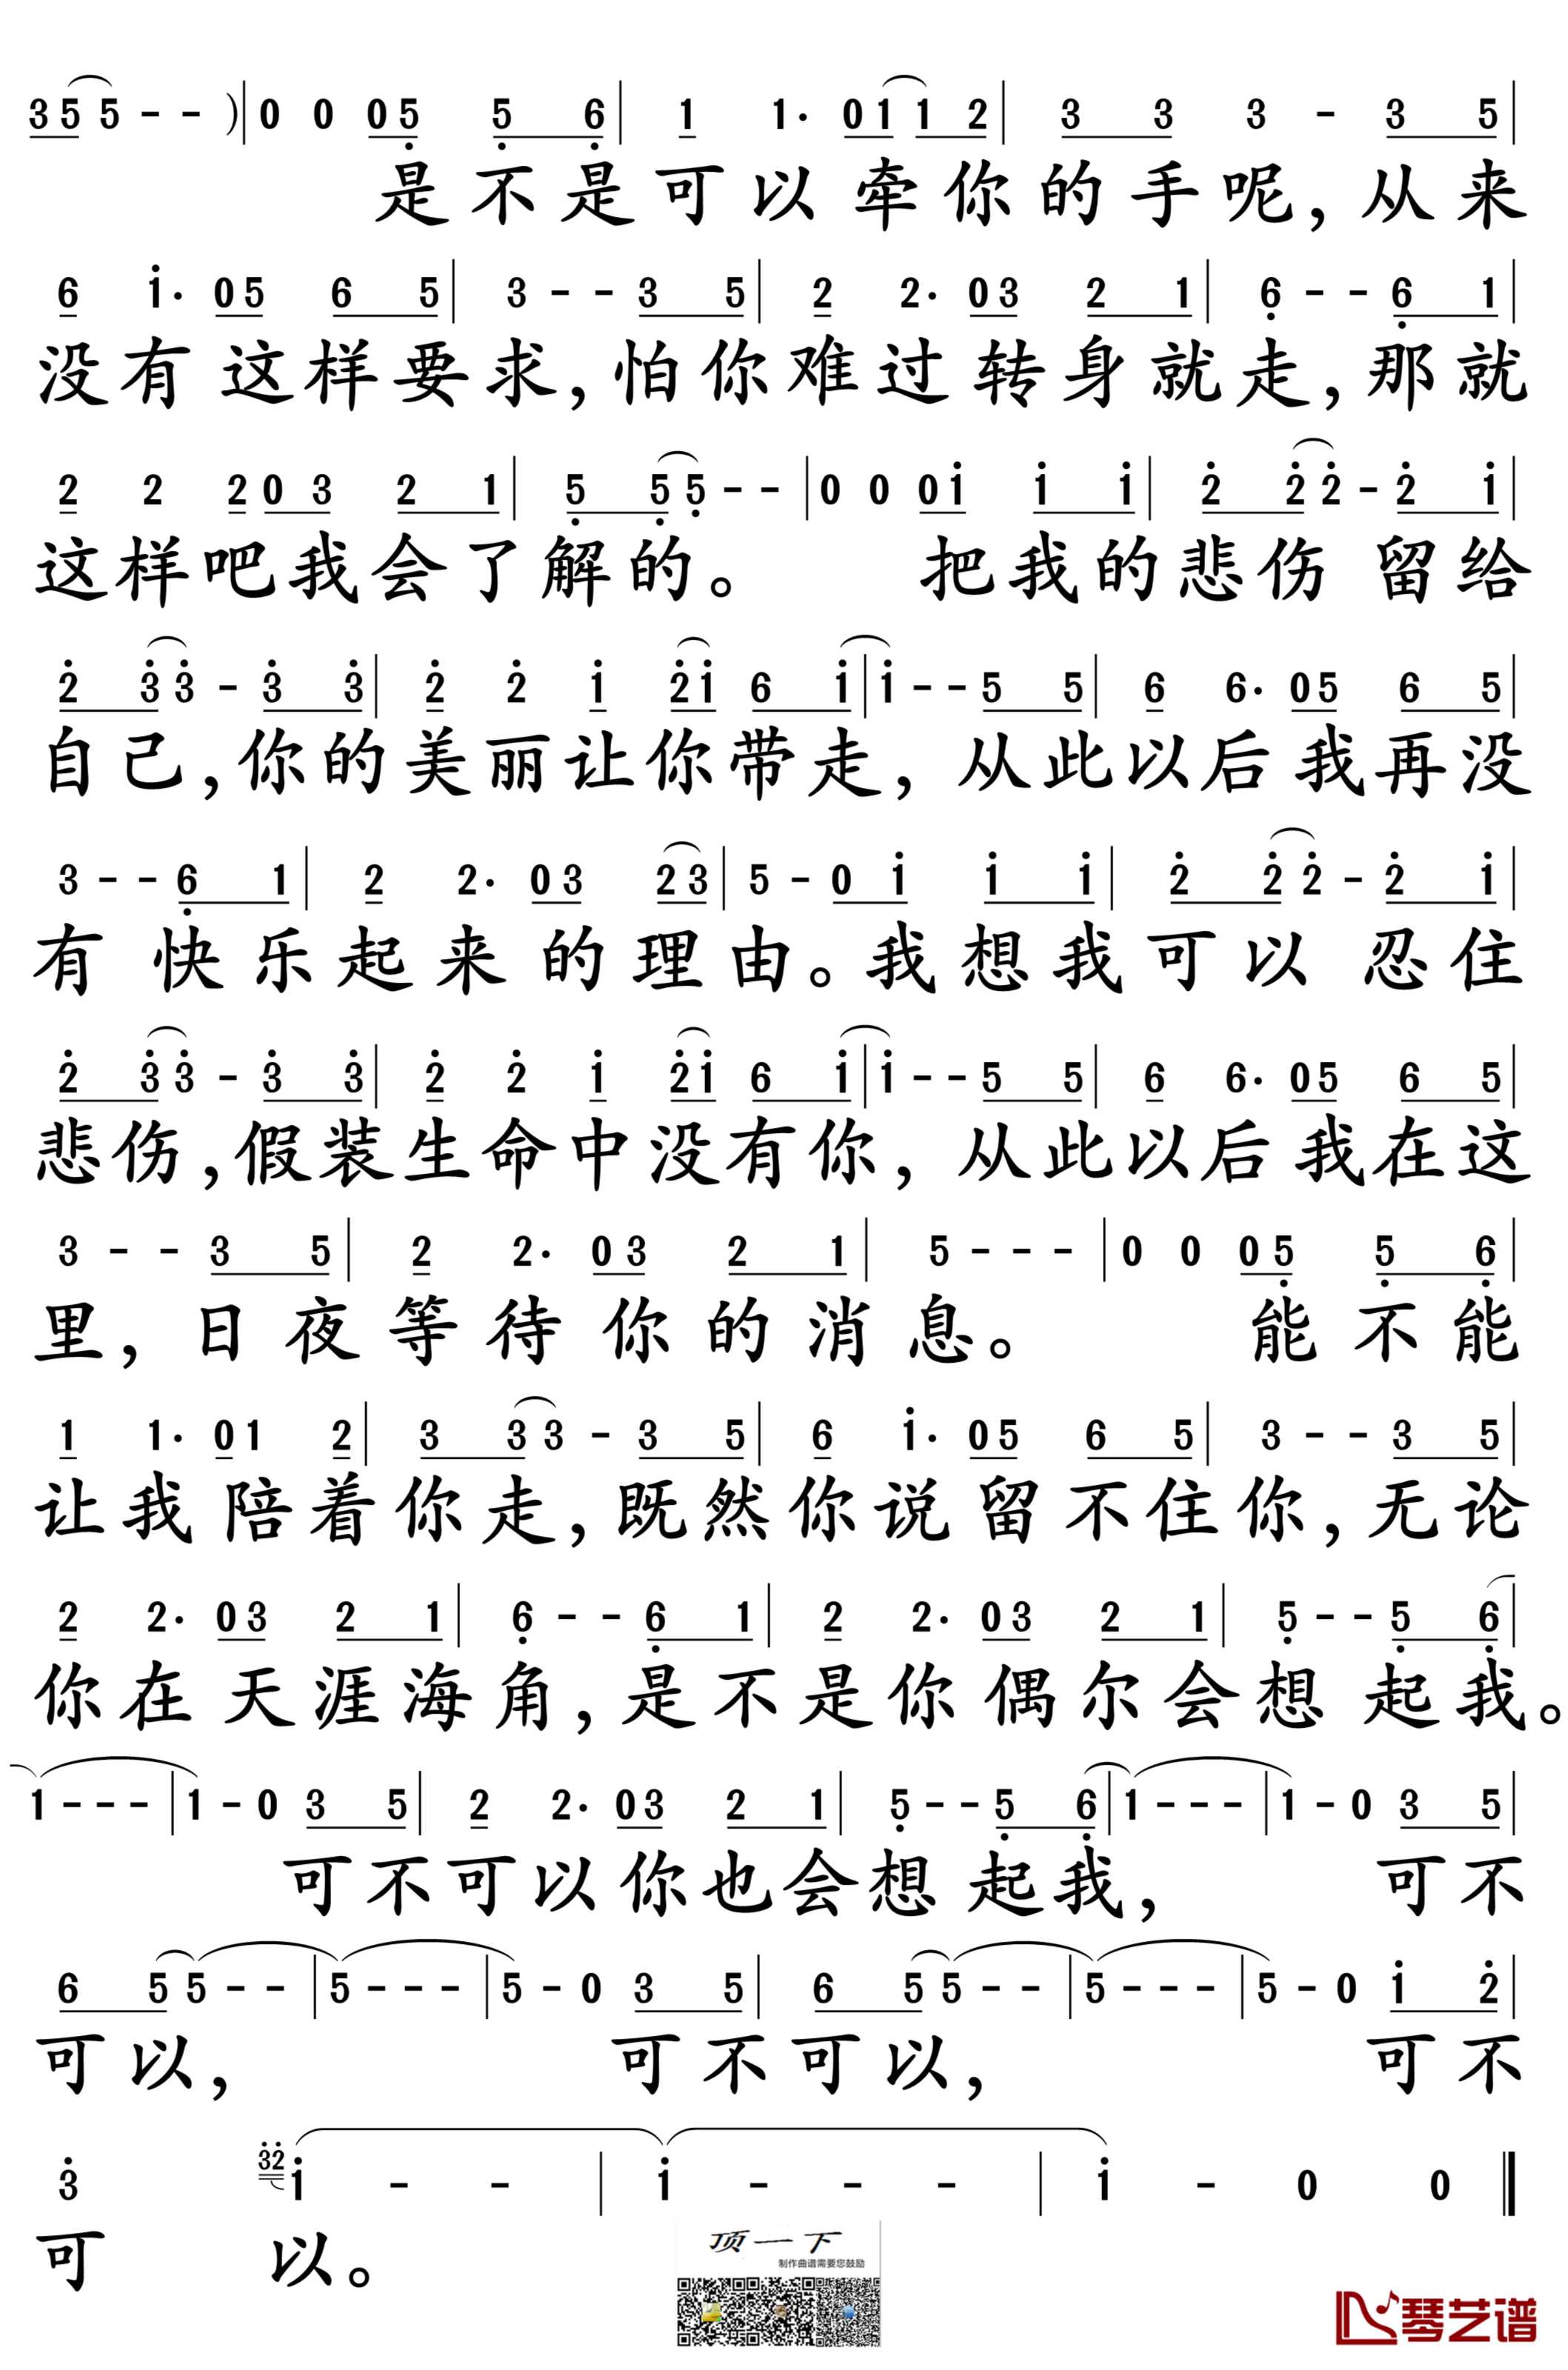 3 5 5 - - ) | 0 0 0 5 5 6 | 1 1· 0 1 1 2 | 3 3 3 - 3 5 |
是不是可以牵你的手呢,从来
6 1· 0 5 6 5 | 3 - - 3 5 | 2 2· 0 3 2 1 | 6 - - 6 1 |
没有这样要求,怕你难过转身就走,那就
2 2 2 0 3 2 1 | 5 5 5 - - | 0 0 0 1 1 1 | 2 2 2 - 2 1 |
这样吧我会了解的。 把我的悲伤 留给
2 3 3 - 3 3 | 2 2 1 2 1 6 1 | 1 - - 5 5 | 6 6· 0 5 6 5 |
自己,你的美丽让你带走,从此以后我再没
3 - - 6 1 | 2 2· 0 3 2 3 | 5 - 0 1 1 1 | 2 2 2 - 2 1 |
有 快乐起来的理由。我想我可以 忍住
2 3 3 - 3 3 | 2 2 1 2 1 6 1 | 1 - - 5 5 | 6 6· 0 5 6 5 |
悲伤,假装生命中没有你,从此以后我在这
3 - - 3 5 | 2 2· 0 3 2 1 | 5 - - - | 0 0 0 5 5 6 |
里,日夜等待你的消息。 能不能
1 1· 0 1 2 | 3 3 3 - 3 5 | 6 1· 0 5 6 5 | 3 - - 3 5 |
让我陪着你走,既然你说留不住你,无论
2 2· 0 3 2 1 | 6 - - 6 1 | 2 2· 0 3 2 1 | 5 - - 5 6 |
你在天涯海角,是不是你偶尔会想 起我。
1 - - - | 1 - 0 3 5 | 2 2· 0 3 2 1 | 5 - - 5 6 | 1 - - - | 1 - 0 3 5 |
可不可以你也会想 起我, 可不
6 5 5 - - | 5 - - - | 5 - 0 3 5 | 6 5 5 - - | 5 - - - | 5 - 0 1 2 |
可以, 可不可以, 可不
3 3 2 1 - - | 1 - - - | 1 - 0 0 ‖
可 以。
顶一下
制作曲谱需要您鼓励
琴艺谱